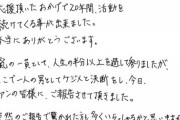 応援頂いたおかげで20年間、活動を
続けてくる事が出来ました。
本当にありがとうございます。
嵐の一員として、人生の半分以上を過して参りましたが、
ここで一人の男としてケジメと決断をし、今日、
ファンの皆様に、ご報告させて頂きました。
突然のご報告で驚かれた方も多くいらっしゃるかと思いますが